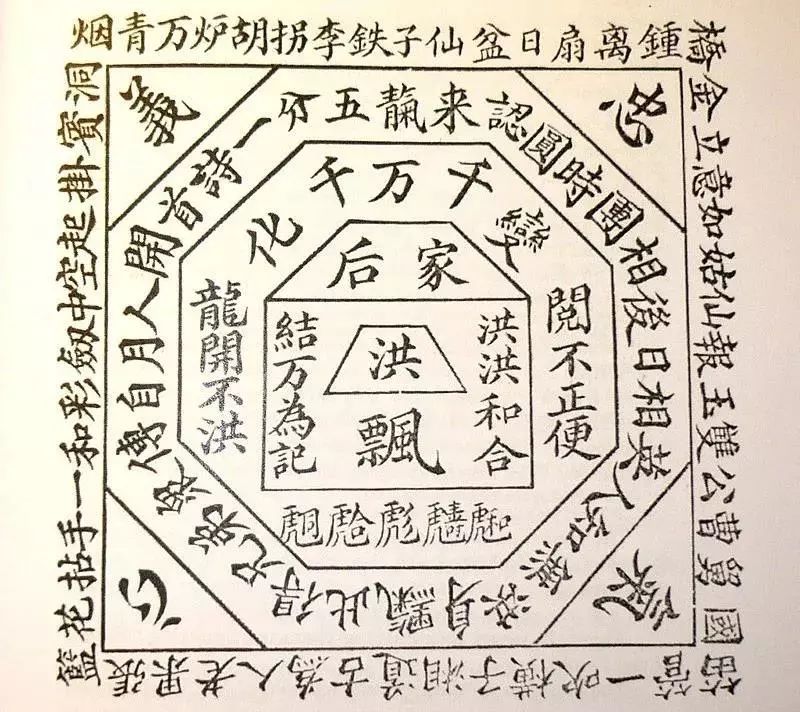 鍾离扇日盆仙子鉄李拐胡炉万青烟
國舅曹公雙玉報仙姑如意立金橋
洞賓掛起空中劔彩和一手拈花籃
張果老人為古道湘子橫吹一管笛
義
氣
傳自月人開首詩一分五
来認圓時團相後日相英人知無
身飄此得兄弟
化千万千變
龍開不洪
閲不正便
后家
結万為記
洪洪和合
洪
飄